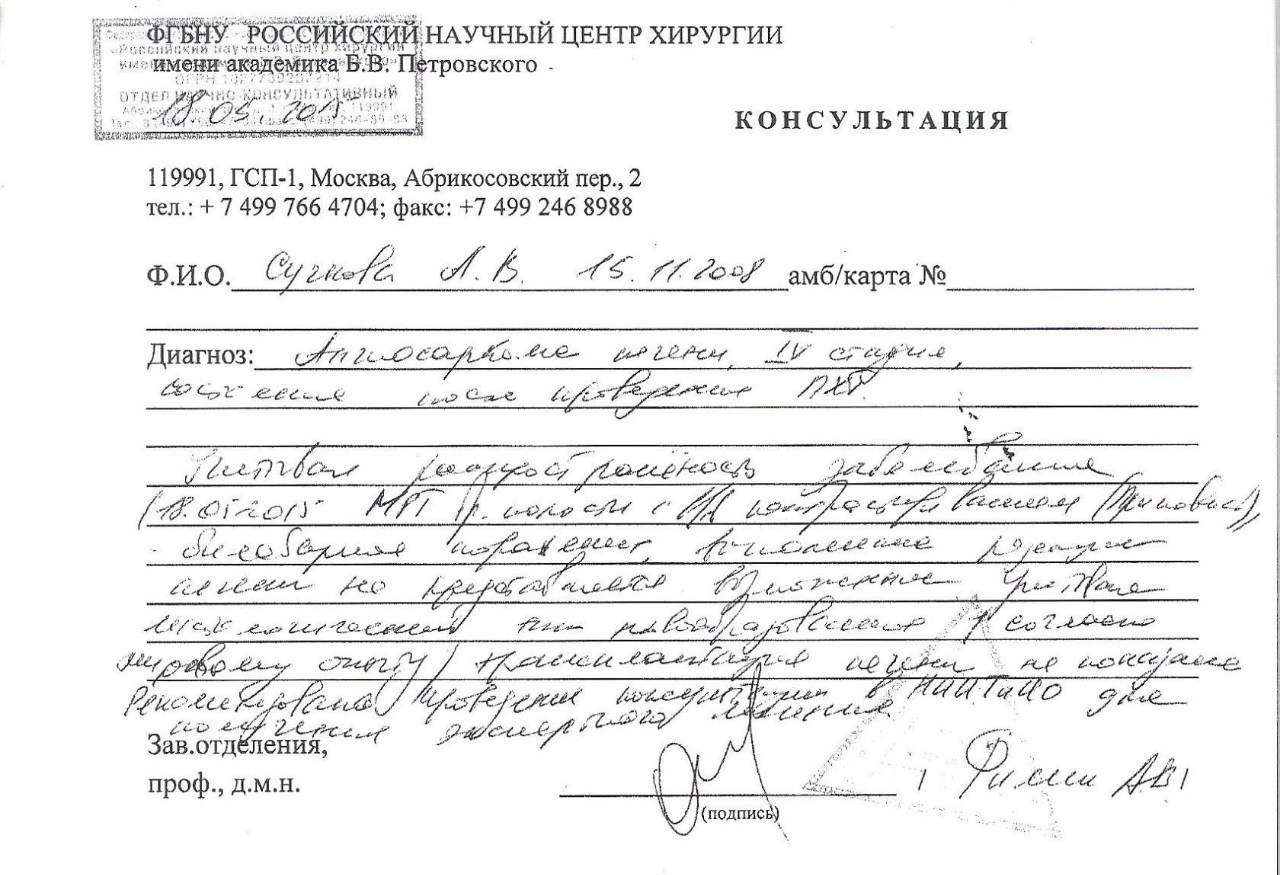 ФГБНУ РОССИЙСКИЙ НАУЧНЫЙ ЦЕНТР ХИРУРГИИ
имени академика Б.В. Петровского
«Российский научный центр хирургии
ОТДЕЛ НАУЧНО-КОНСУЛЬТАТИВНЫЙ
18.05.2015
КОНСУЛЬТАЦИЯ
119991, ГСП-1, Москва, Абрикосовский пер., 2
тел.: + 7 499 766 4704; факс: +7 499 246 8988
Ф.И.О. Сучкова А.В. 15.11.2008 амб/карта №
Диагноз: Ангиосаркома печени, IV стадия,
состояние после проведения ПХТ.
Учитывая распространённость заболевания
(18.05.2015 МРТ бр. полости с в/в контрастированием (Примовист),
- билобарное поражение, выполнение резекции
печени не представляется возможным. Учитывая
гистологический тип новообразования (согласно
мировому опыту) трансплантация печени не показана
Рекомендовано проведение консультации в НИИТиИО для
получения экспертного мнения
Зав.отделения,
проф., д.м.н.
(подпись)
Филин А.В.